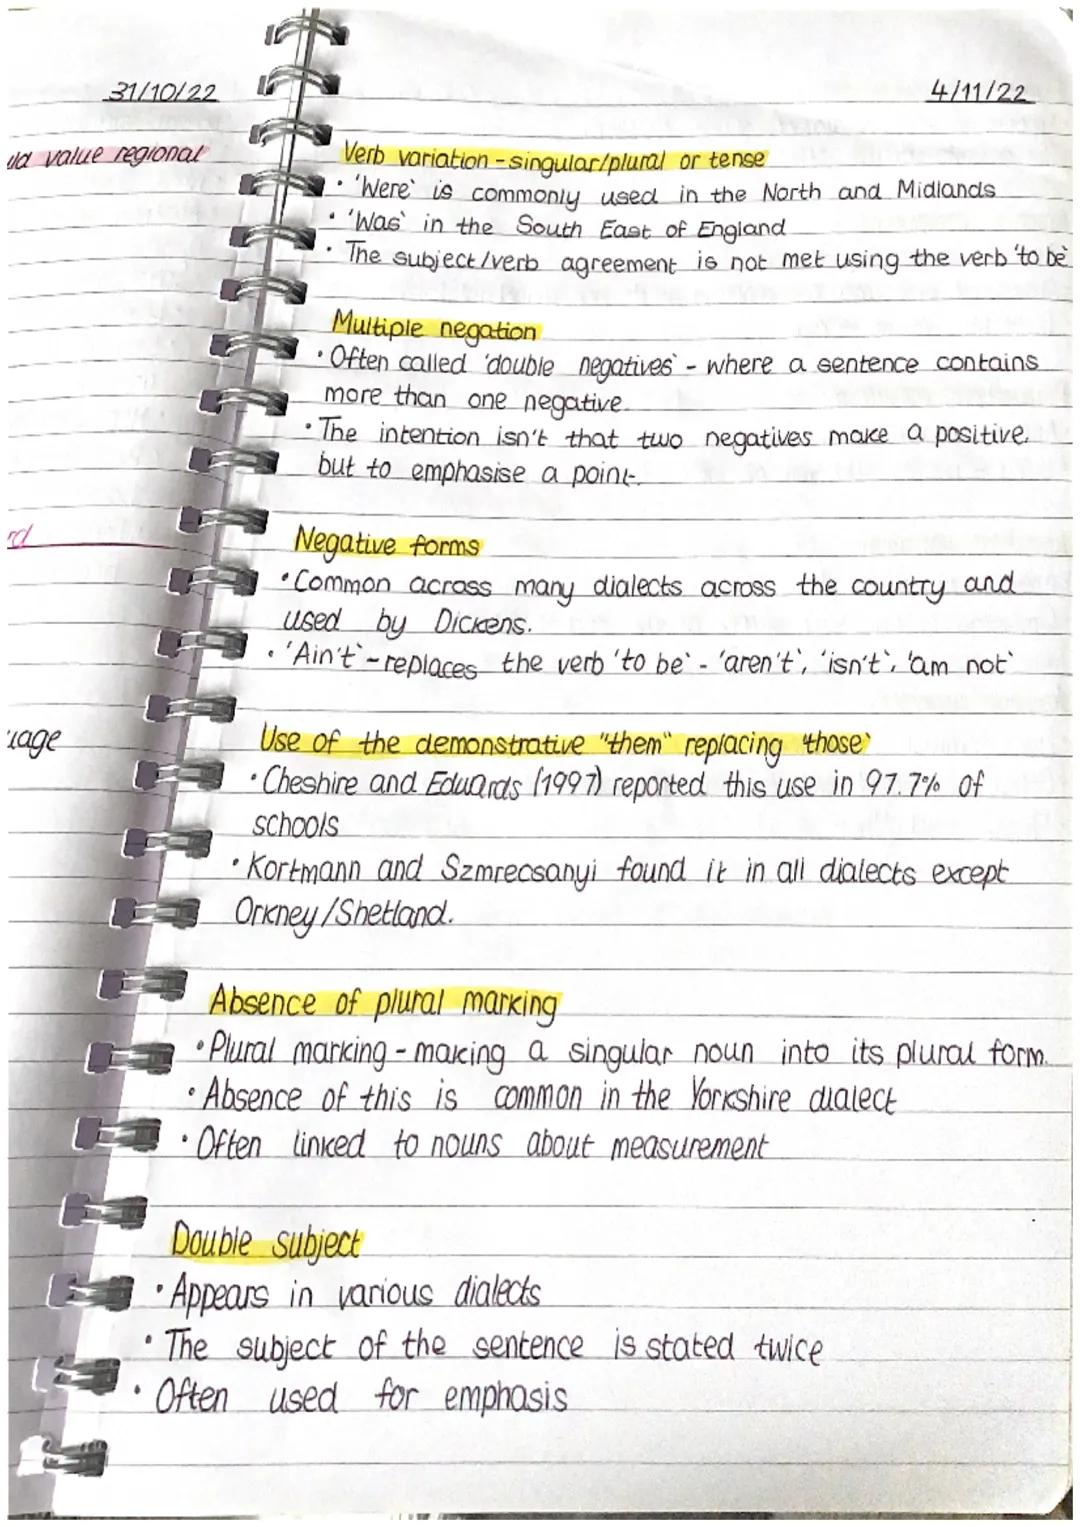 31/10/22
value regional
uage
4/11/22
Verb variation - singular/plural or tense
• 'Were' is commonly used in the North and Midlands
• 'Was' in the South East of England
• The subject/verb agreement is not met using the verb 'to be'
Multiple negation
• Often called 'double negatives' - where a sentence contains
more than one negative.
• The intention isn't that two negatives make a positive.
but to emphasise a point.
Negative forms
• Common across many dialects across the country and
used by Dickens.
• 'Ain't' - replaces the verb 'to be' - 'aren't', 'isn't', 'am not'
Use of the demonstrative "them" replacing 'those'
• Cheshire and Eduards (1997) reported this use in 97.7% of
schools
• Kortmann and Szmrecsanyi found it in all dialects except
Orkney/Shetland.
Absence of plural marking
• Plural marking - making a singular noun into its plural form.
• Absence of this is common in the Yorkshire dialect
• Often linked to nouns about measurement
Double subject
• Appears in various dialects
• The subject of the sentence is stated twice
• Often used for emphasis